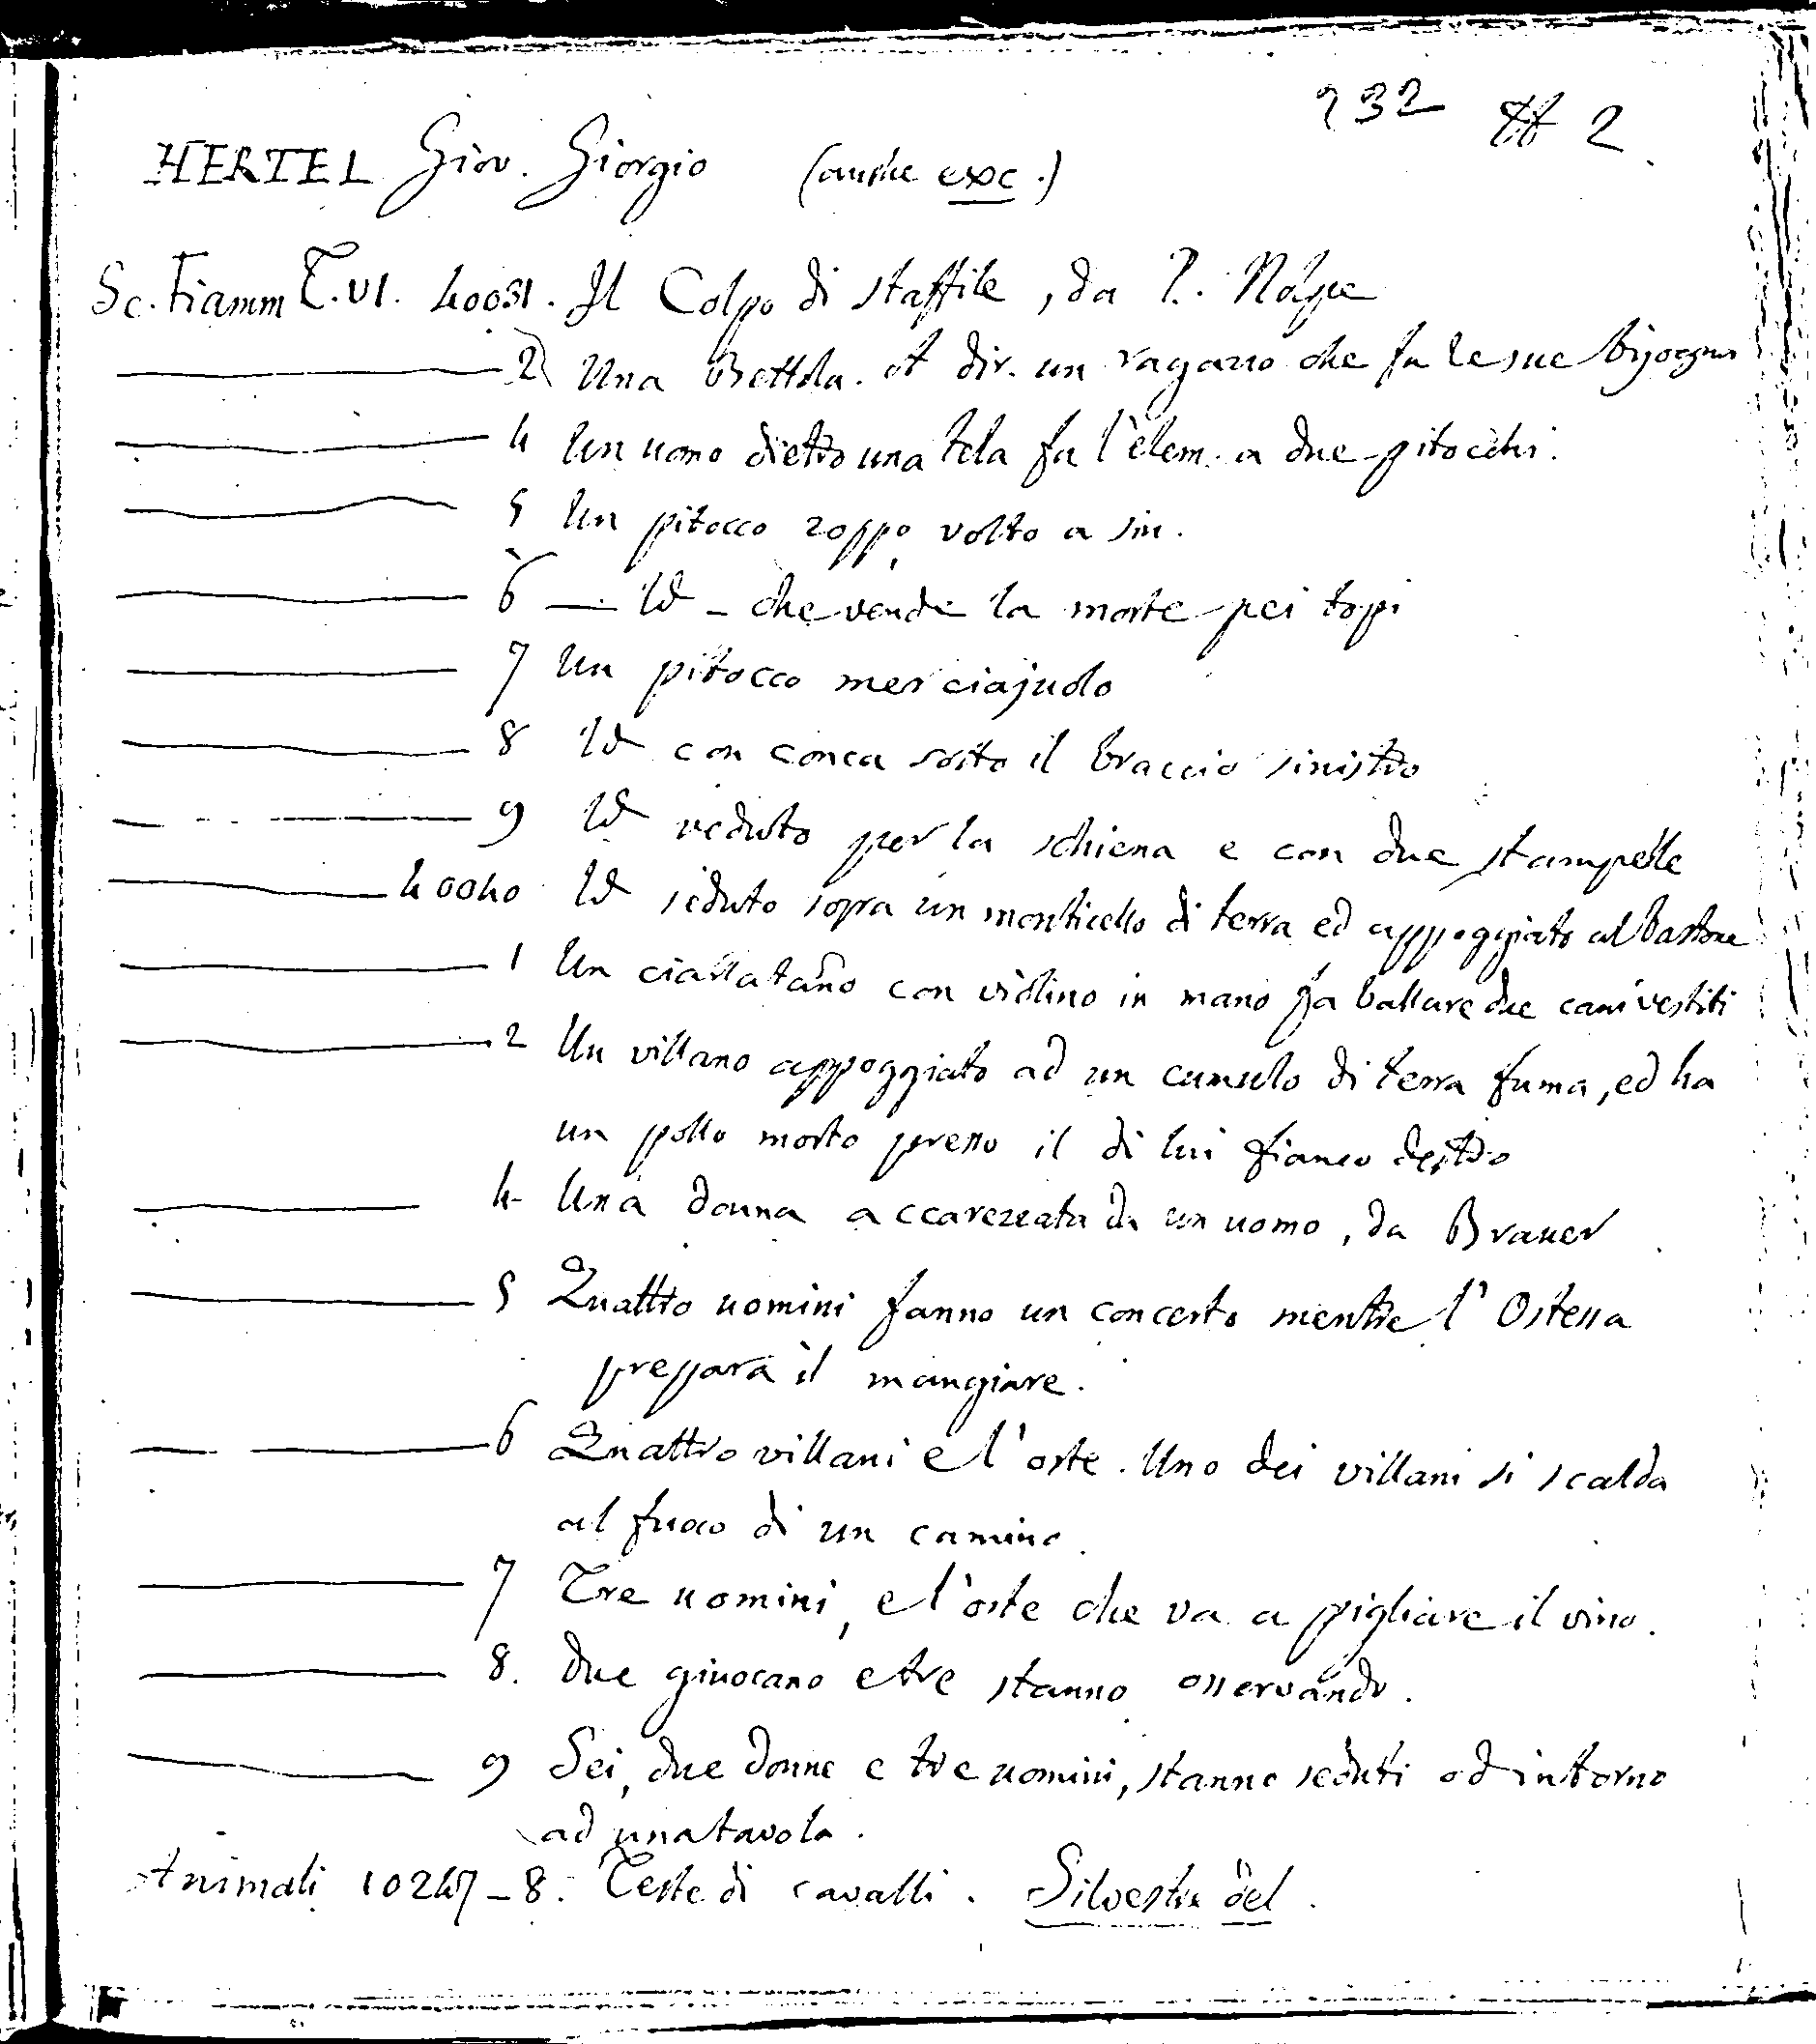 232 H 2
HERTEL Giov. Giorgio (anche exc.)
Sc. Fiamm T. VI. 40031. Il Colpo di staffile, da P. Nolpe
2 Una Bettola. A dir. un ragazzo che fa le sue bisogna
4 Un uomo dietro una tela fa l'elem. a due pitocchi.
5 Un pitocco zoppo, volto a sin.
6 — Id — che vende la morte pei topi
7 Un pitocco merciajuolo
8 Id con conca sotto il braccio sinistro
9 Id veduto per la schiena e con due stampelle
40040 Id seduto sopra un monticello di terra ed appoggiato al bastone
1 Un ciarlatano con violino in mano fa ballare due cani vestiti
2 Un villano appoggiato ad un cumulo di terra fuma, ed ha
un pollo morto presso il di lui fianco destro
4 Una donna accarezzata da un uomo, da Brauer
5 Quattro uomini fanno un concerto mentre l'Ostessa
prepara il mangiare.
6 Quattro villani e l'oste. Uno dei villani si scalda
al fuoco di un camino.
7 Tre uomini, e l'oste che va a pigliare il vino.
8. Due giuocano e tre stanno osservando.
9 Sei, due donne e tre uomini, stanno seduti od intorno
ad una tavola.
Animali 10247-8. Teste di cavalli. Silvestre del.